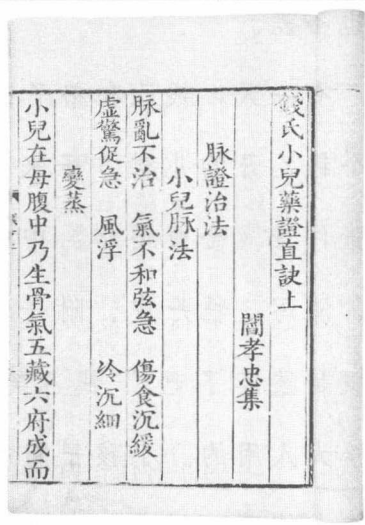 錢氏小兒藥證直訣上
閻孝忠集
脉證治法
小兒脉法
脉亂不治 氣不和弦急 傷食沉緩
虛驚促急 風浮 冷沉細
變蒸
小兒在母腹中乃生骨氣五藏六府成而